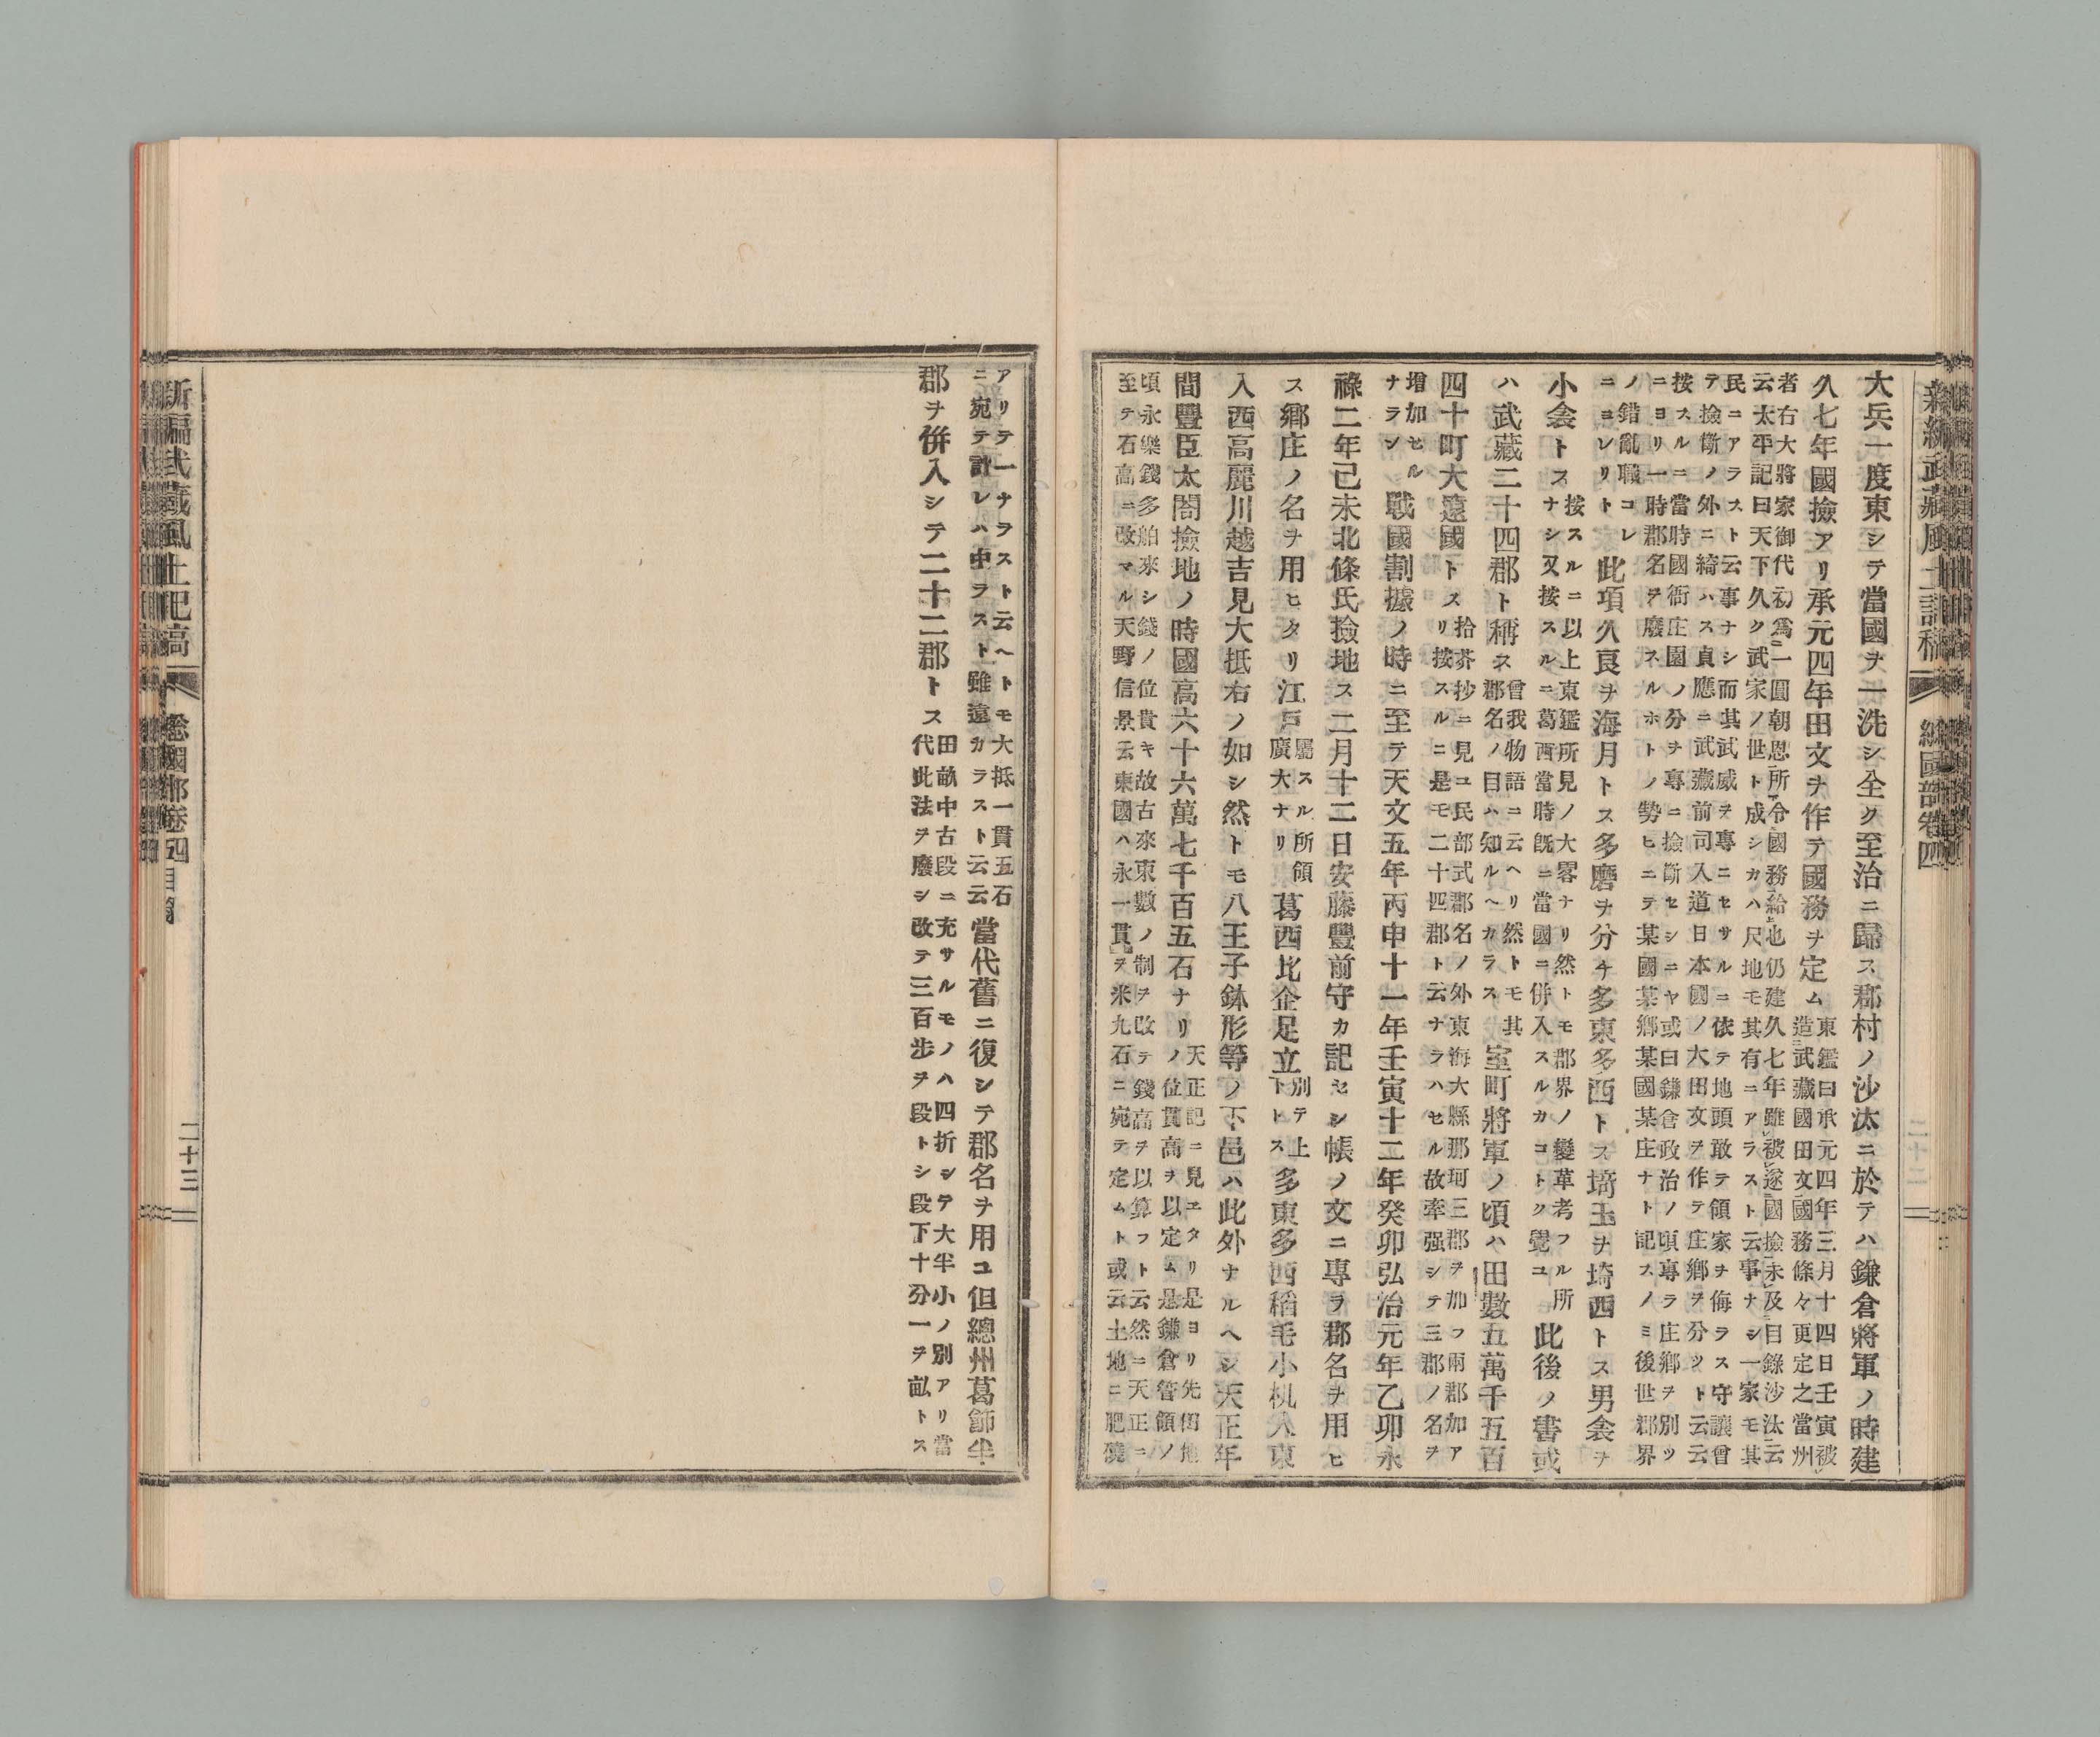 大兵一度東シテ當國ヲ一洗シ全ク至治ニ歸ス郡村ノ沙汰ニ於テハ鎌倉將軍ノ時建
久七年國撿アリ承元四年田文ヲ作テ國務ヲ定ム
東鑑曰承元四年三月十四日壬寅被
造武藏國田文國務條々更定之當州
者右大將家御代初爲一圓朝恩所令國務給也仍建久七年雖被遂國撿未及目錄沙汰云
云太平記曰天下久ク武家ノ世ト成シカハ尺地モ其有ニアラスト云事ナシ一家モ其
民ニアラスト云事ナシ而其武威ヲ專ニセサルニ依テ地頭敢テ領家ヲ侮ラス守護曾
テ撿斷ノ外ニ綺ハス貞應ニ武藏前司入道日本國ノ大田文ヲ作テ庄鄉ヲ分ツト云云
按スルニ當時國衙庄園ノ分チ專ニ撿斷セシニヤ或曰鎌倉政治ノ頃專ラ庄鄉ヲ別ツ
ニヨリ一時郡名ヲ廢スルホトノ勢ヒニテ某國某鄉某國某庄ナト記スノミ後世郡界
ノ錯亂職コレ
ニヨレリト
此項久良ヲ海月トス多磨ヲ分ケ多東多西トス埼玉ヲ埼西トス男衾ヲ
小衾トス
按スルニ以上東鑑所見ノ大畧ナリ然トモ郡界ノ變革考フル所
ナシ又按スルニ葛西當時既ニ當國ニ併入スルカコトク覺ユ
此後ノ書或
ハ武藏二十四郡ト稱ス
曾我物語ニ云ヘリ然トモ其
郡名ノ目ハ知ルヘカラス
室町將軍ノ頃ハ田數五萬千五百
四十町大遠國トス
拾芥抄ニ見ユ民部式郡名ノ外東海大縣那珂三郡ヲ加フ兩郡加ア
リ按スルニ是モ二十四郡ト云ナラハセル故牽强シテ三郡ノ名ヲ
增加セル
ナラン
戰國割據ノ時ニ至テ天文五年丙申十一年壬寅十二年癸卯弘治元年乙卯永
祿二年己未北條氏撿地ス二月十二日安藤豐前守カ記セシ帳ノ文ニ專ラ郡名ヲ用ヒ
ス鄉庄ノ名ヲ用ヒタリ江戶
屬スル所領
廣大ナリ
葛西比企足立
別テ上
下トス
多東多西稻毛小机入東
入西高麗川越吉見大抵右ノ如シ然トモ八王子鉢形等ノ下邑ハ此外ナルヘシ天正年
間豐臣太閤撿地ノ時國高六十六萬七千百五石ナリ
天正記ニ見エタリ是ヨリ先田地
ノ位貫高ヲ以定ム是鎌倉管領ノ
頃永樂錢多舶來シ錢ノ位貴キ故古來東數ノ制ヲ改テ錢高ヲ以算フト云然ニ天正ニ
至テ石高ニ改マル天野信景云東國ハ永一貫ヲ米九石ニ宛テ定ムト或云土地ニ肥磽
新編武藏風土記稿 總國部卷四
二十二
アリテ一ナラスト云ヘトモ大抵一貫五石
ニ宛テ計レハ中ラスト雖遠カラスト云云
當代舊ニ復シテ郡名ヲ用ユ但總州葛飾半
郡ヲ併入シテ二十二郡トス
田畝中古段ニ充サルモノハ四折シテ大半小ノ別アリ當
代此法ヲ廢シ改テ三百步ヲ段トシ段下十分一ヲ畝トス
新編武藏風土記稿 總國部卷四
二十三